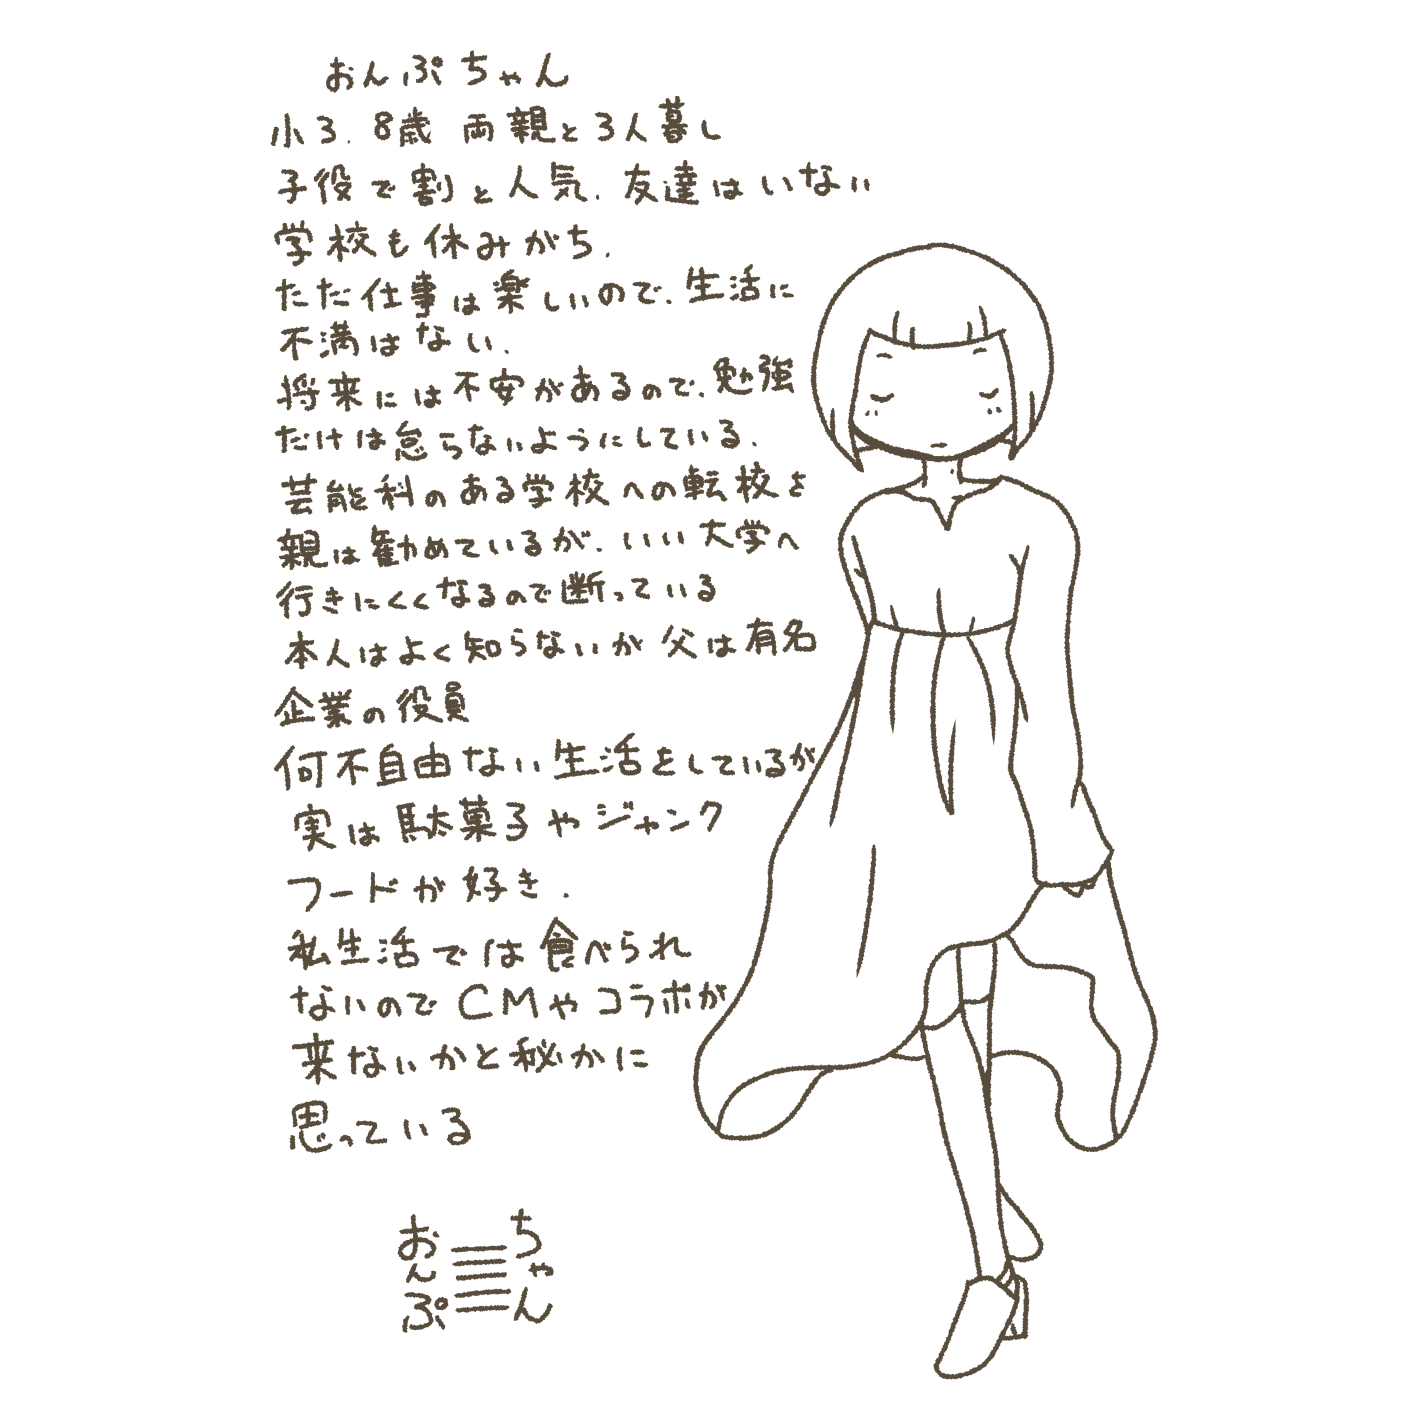 おんぷちゃん
小3.8歳 両親と3人暮し
子役で割と人気.友達はいない
学校も休みがち.
ただ仕事は楽しいので.生活に
不満はない.
将来には不安があるので.勉強
だけは怠らないようにしている.
芸能科のある学校への転校を
親は勧めているが.いい大学へ
行きにくくなるので断っている
本人はよく知らないが父は有名
企業の役員
何不自由ない生活をしているが
実は駄菓子やジャンク
フードが好き.
私生活では食べられ
ないのでCMやコラボが
来ないかと秘かに
思っている
おんぷ
ちゃん